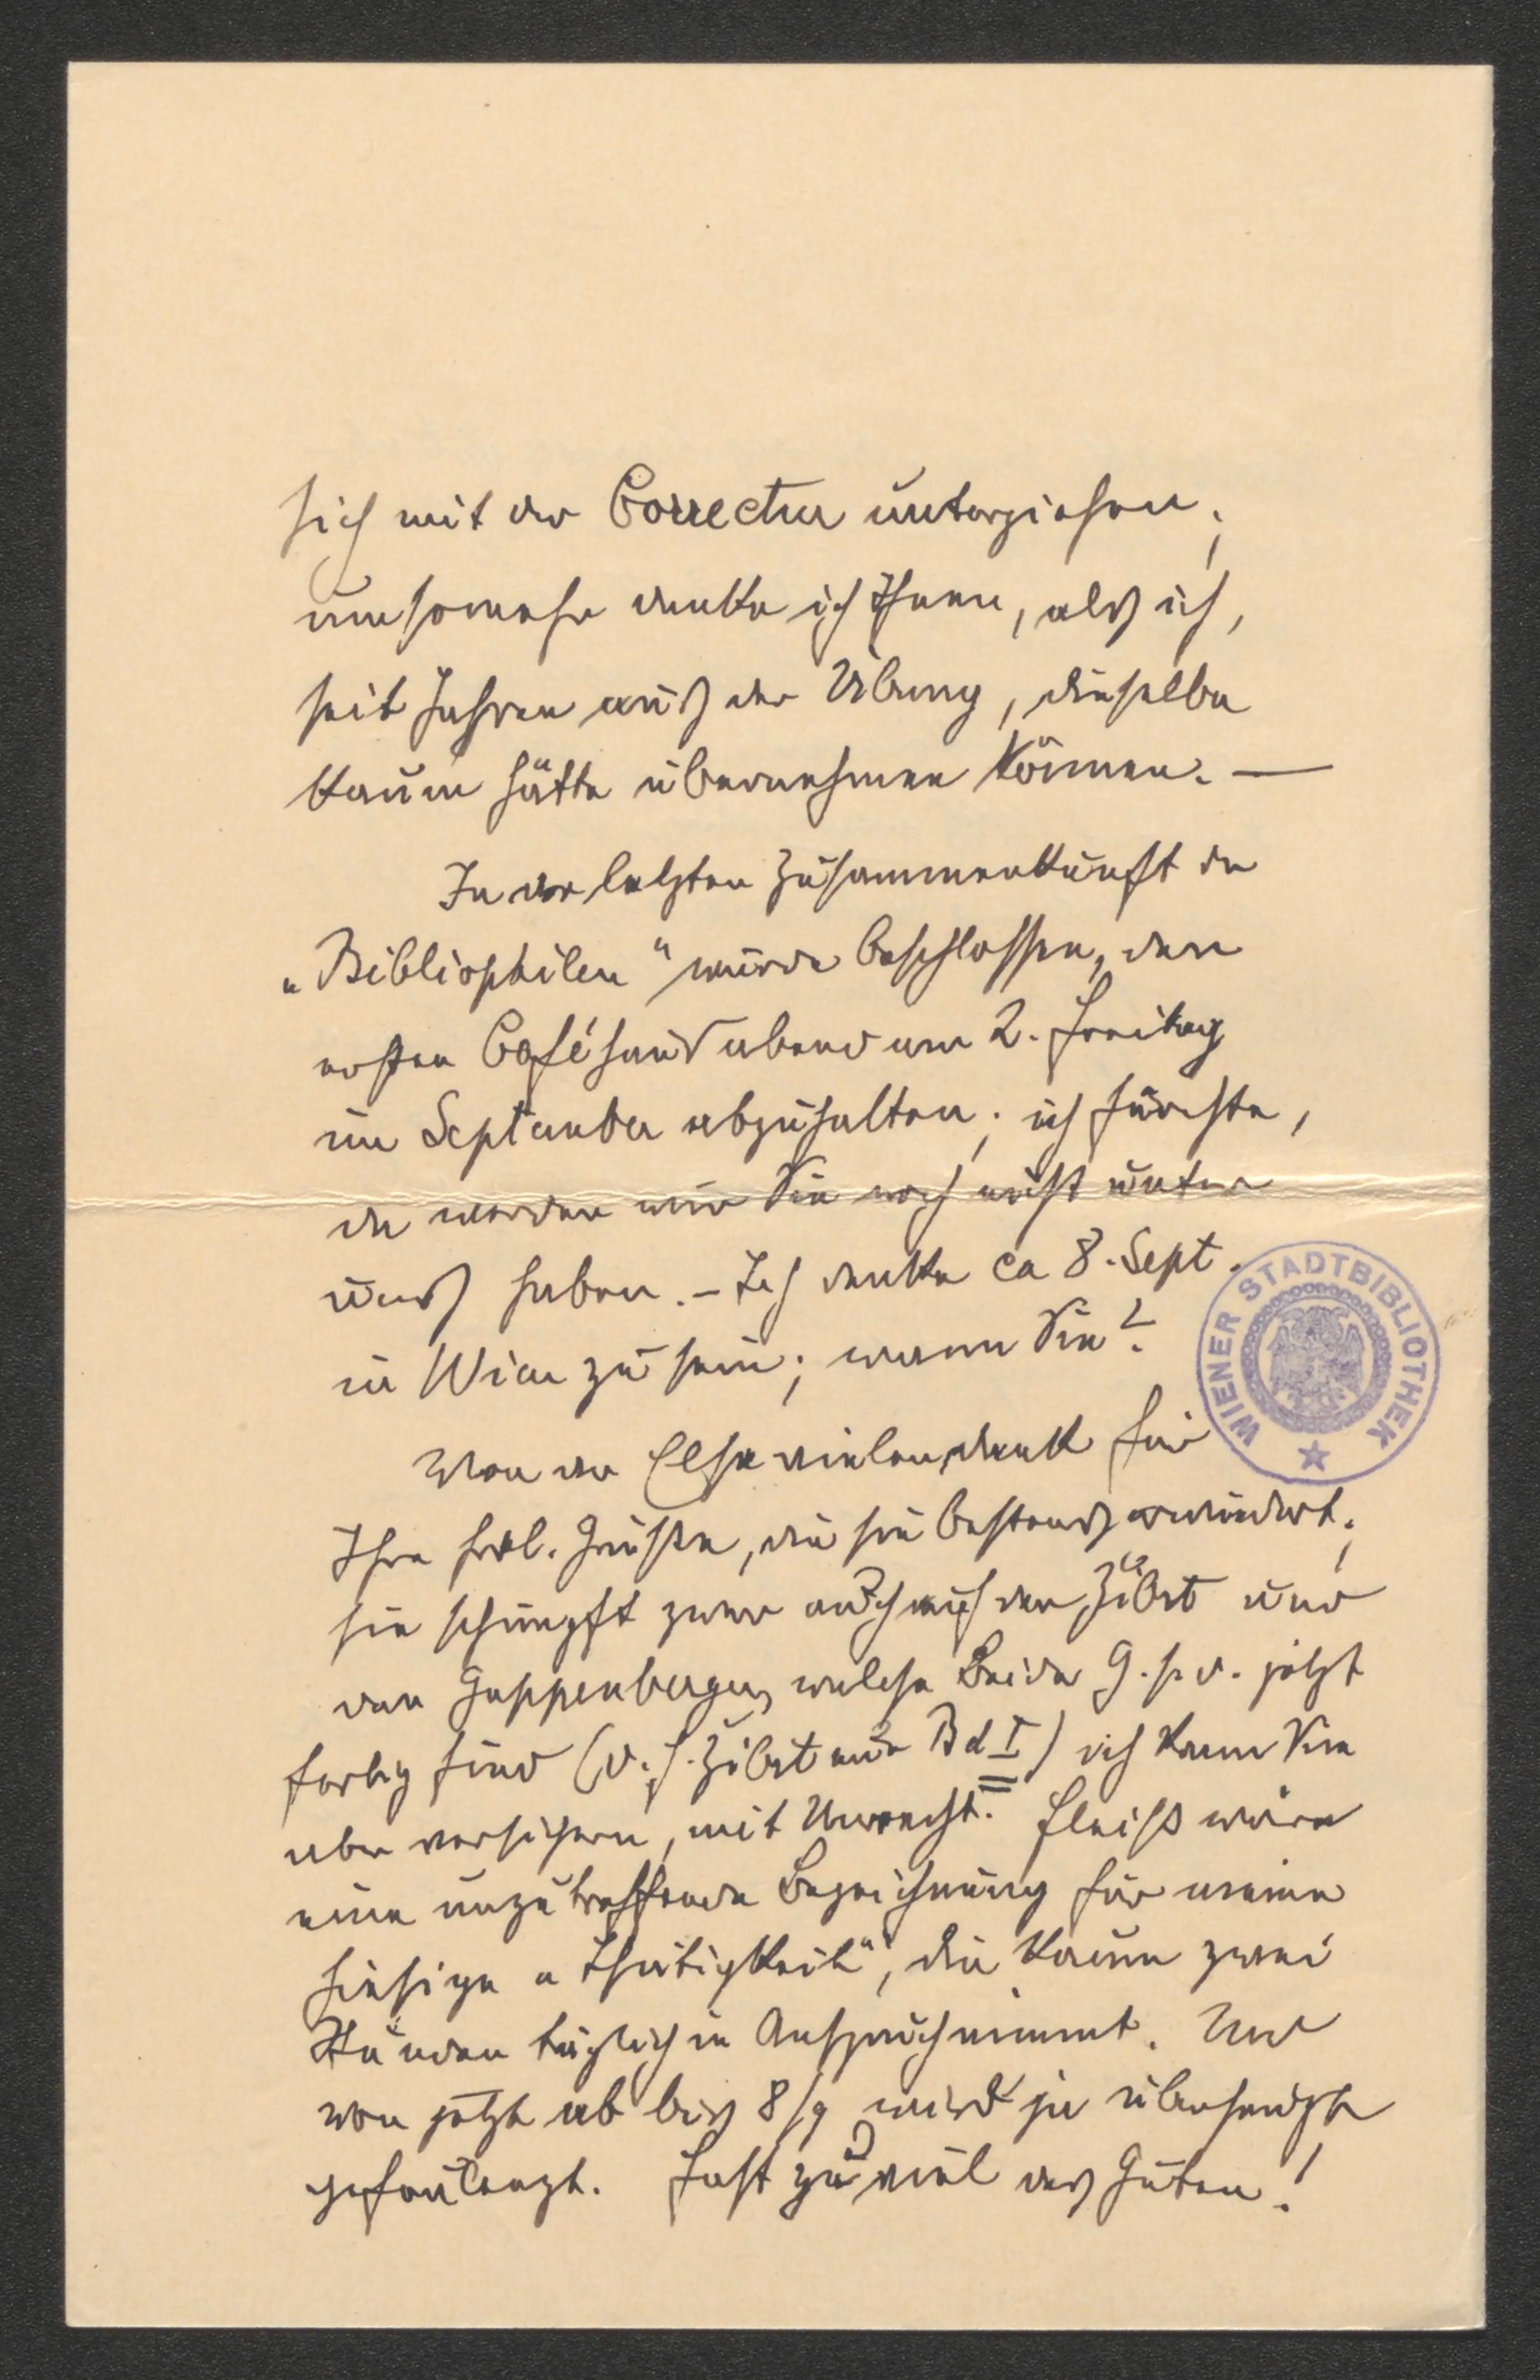 sich mit der Correctur unterziehen;
umsomehr danke ich Ihnen, als ich,
seit Jahren aus der Übung, dieselbe
kaum hätte übernehmen können. —
In der letzten Zusammenkunft der
„Bibliophilen“ wurde beschlossen, den
ersten Caféhausabend am 2. Freitag
im September abzuhalten; ich fürchte,
da werden wir Sie noch nicht unter
uns haben. – Ich denke ca 8. Sept.
in Wien zu sein; wann Sie?
Von der Else vielen Dank für
Ihre frdl. Grüße, die sie bestens erwidert;
sie schimpft zwar auch auf den Zibrt und
den Guppenberger, welche beide G. s. d. jetzt
fertig sind (d. h. Zibrt nur Bd I) ich kann Sie
aber versichern, mit Unrecht. Fleiß wäre
eine unzutreffende Bezeichnung für meine
hiesige „Thätigkeit“, die kaum zwei
Stunden täglich in Anspruch nimmt. Und
von jetzt ab bis 8/9 wird ja überhaupt
gefaulenzt. Fast zu viel des Guten!
WIENER STADTBIBLIOTHEK